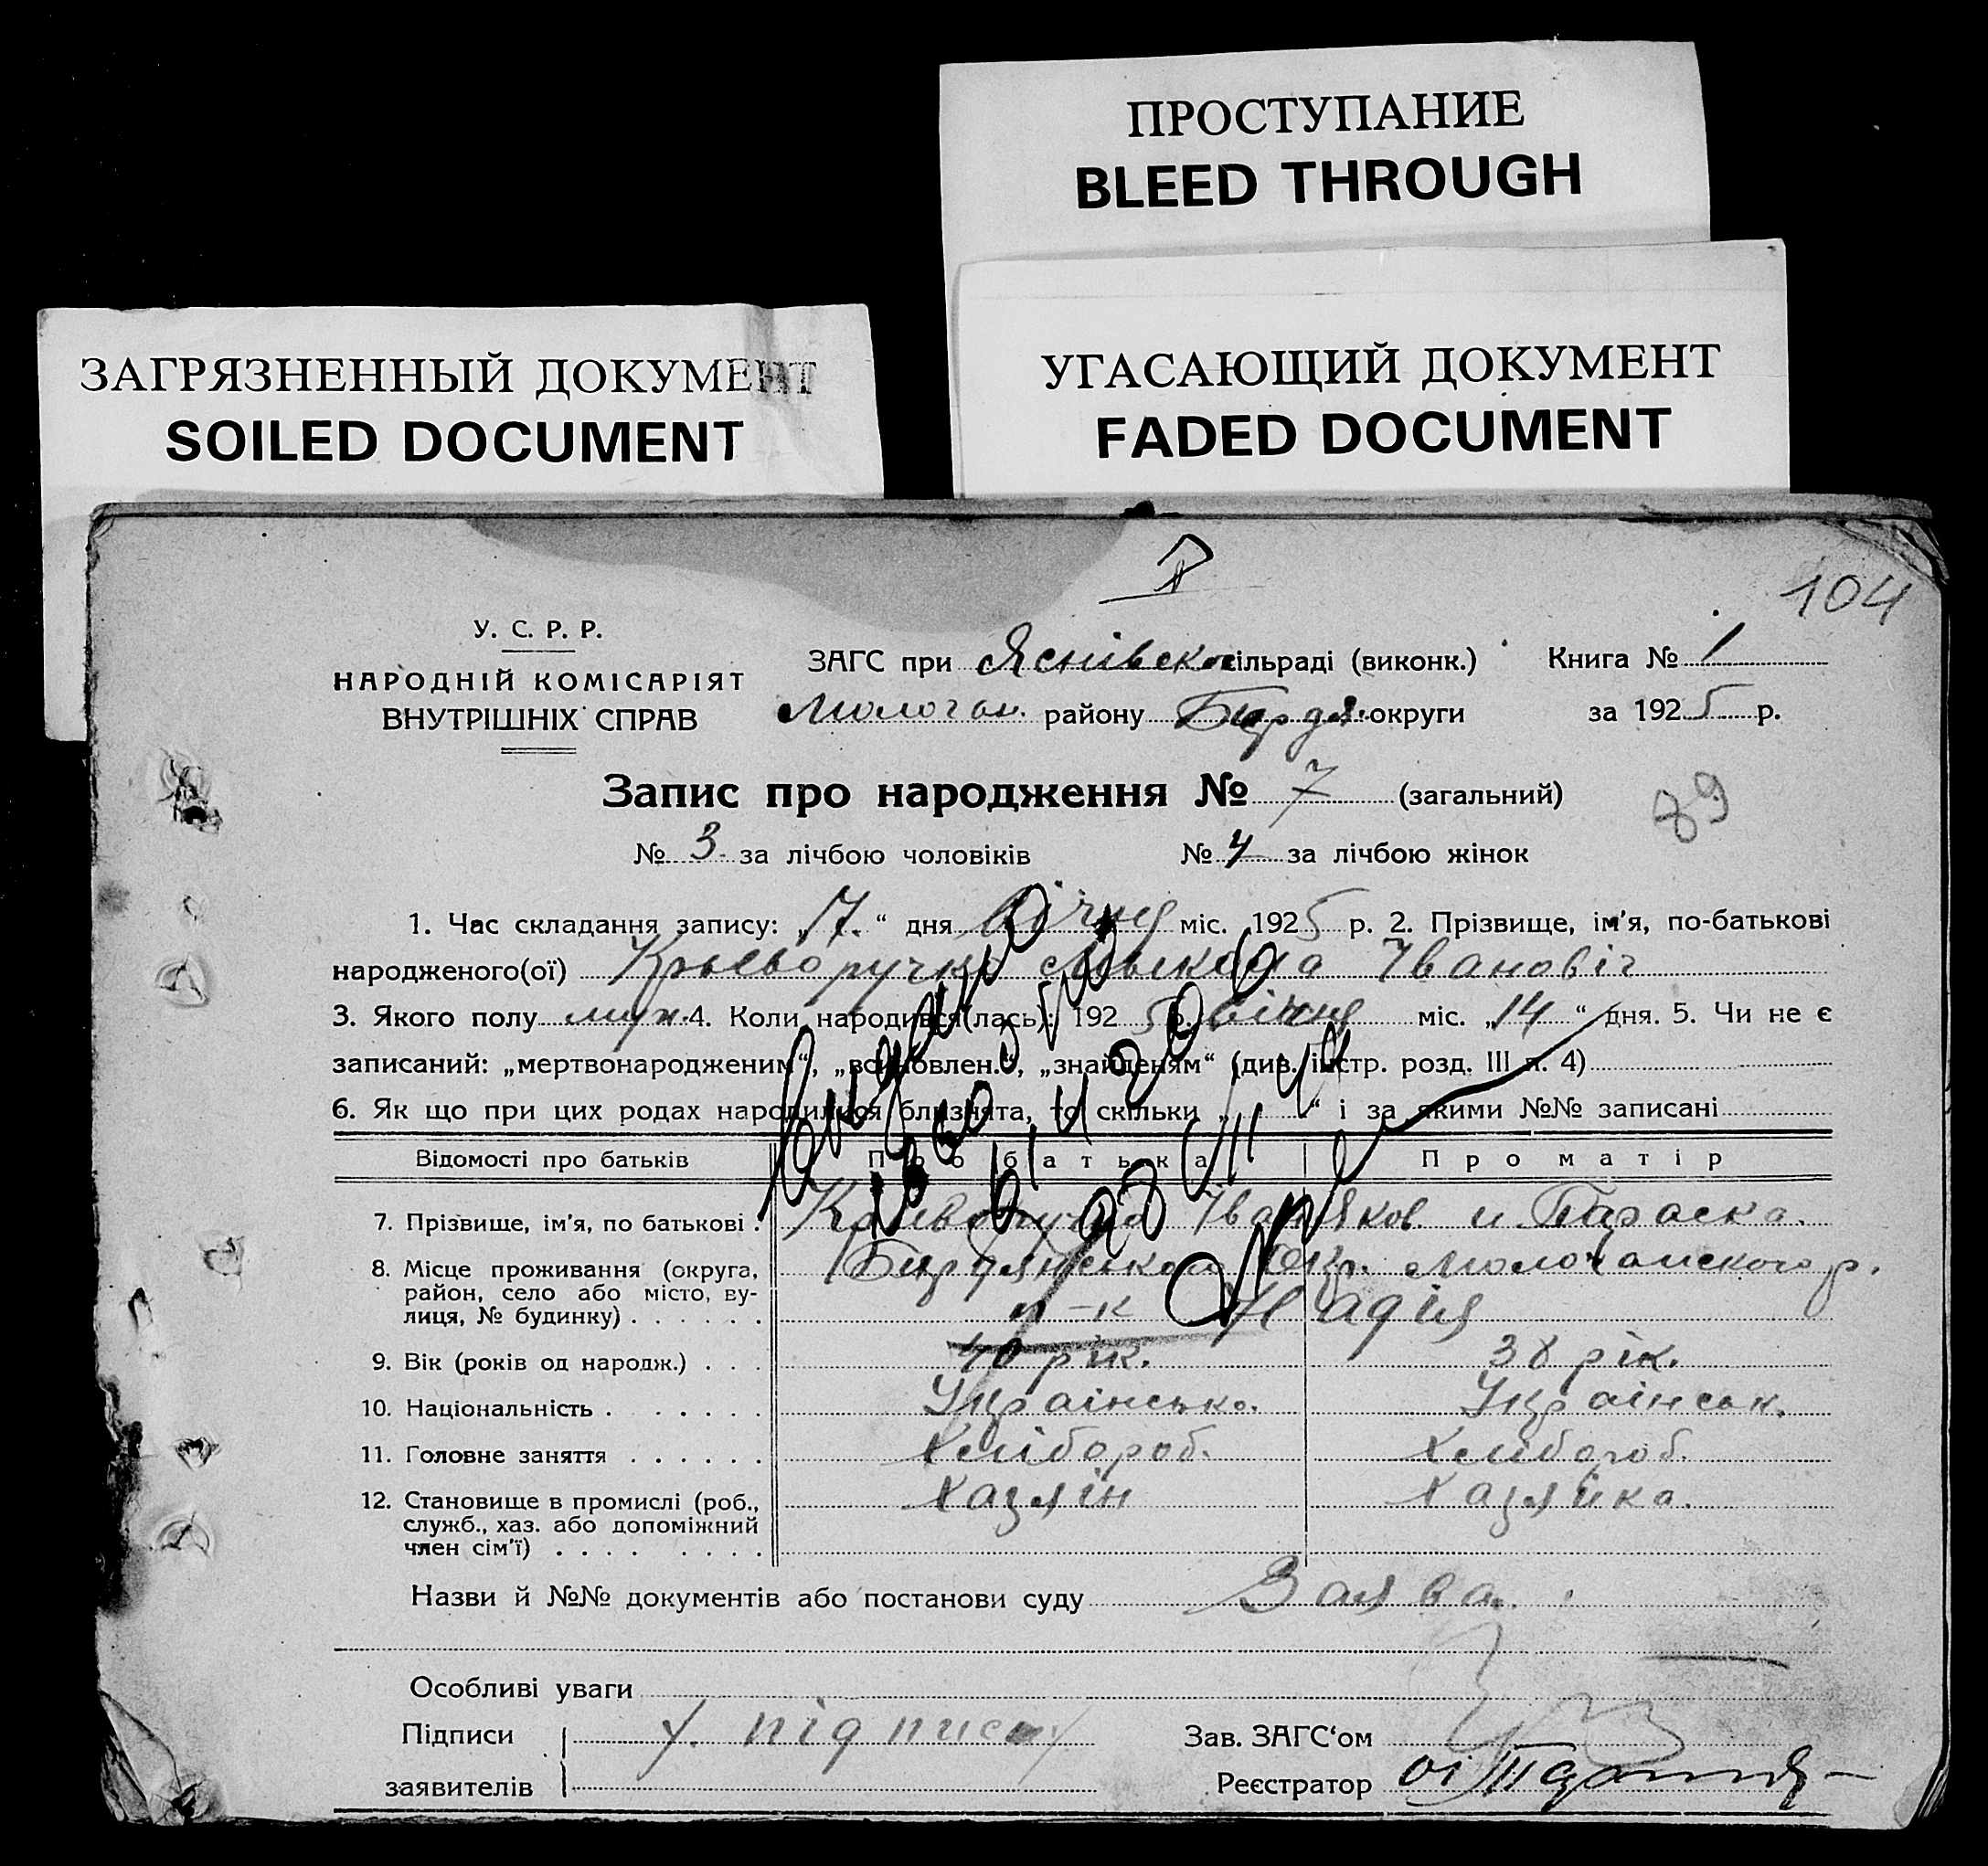 ПРОСТУПАНИЕ
BLEED THROUGH
ЗАГРЯЗНЕННЫЙ ДОКУМЕНТ
SOILED DOCUMENT
УГАСАЮЩИЙ ДОКУМЕНТ
FADED DOCUMENT
104
У. С. Р. Р.
НАРОДНІЙ КОМІСАРІЯТ
ВНУТРІШНІХ СПРАВ
ЗАГС при Яснівской сільраді (виконк.) Книга № 1
Молочан. району Бердя. округи за 1925 р.
Запис про народження № 7 (загальний)
89
№ 3 за лічбою чоловіків № 4 за лічбою жінок
1. Час складання запису: „17.“ дня Січня міс. 1925 р. 2. Прізвище, ім'я, по-батькові
народженого(ої) Криворучко Микола Івановіч
3. Якого полу муж. 4. Коли народився(лась): 1925 р. січня міс. „14“ дня. 5. Чи не є
записаний: „мертвонародженим“, „всиновлен.“, „знайденям“ (див. інстр. розд. III п. 4)
6. Як що при цих родах народилися близнята, то скільки „ “ і за якими №№ записані
Відомості про батьків Про батька Про матір
7. Прізвище, ім'я, по батькові . Криворучко Іван Яков. и Параска.
8. Місце проживання (округа, Бирдянського Окр. Молочанского р.
район, село або місто, ву-
лиця, № будинку) . . . . . . Надія
9. Вік (років од народж.) . . . 40 рік. 38 рік.
10. Національність . . . . . . . Українсько. Українськ.
11. Головне заняття . . . . . . Хлібороб. Хлібороб.
12. Становище в промислі (роб., Хазяїн Хазяйка.
служб., хаз. або допоміжний
член сім'ї) . . . . . . . .
Назви й №№ документів або постанови суду Заява.
Особливі уваги
Підписи підписи Зав. ЗАГС'ом
заявителів Реєстратор